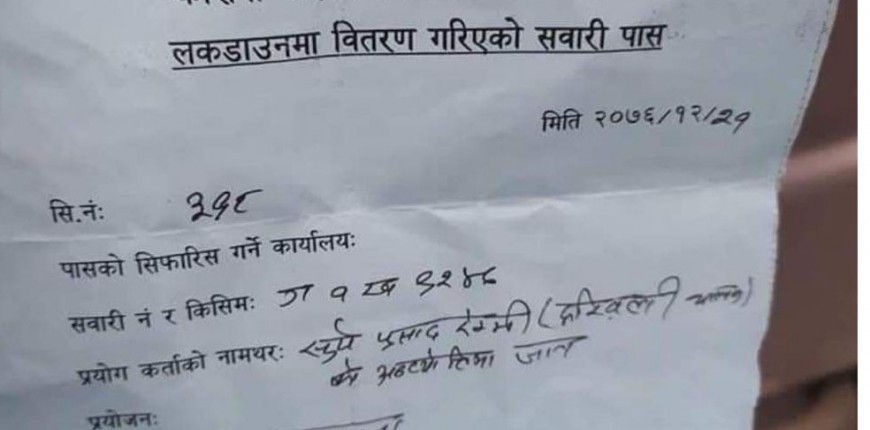 लकडाउनमा वितरण गरिएको सवारी पास
मिति २०७६/१२/२१
सि.नं: ३१८
पासको सिफारिस गर्ने कार्यालय:
सवारी नं र किसिम: ज १ ख
प्रयोग कर्ताको नामथर: सूर्य प्रसाद रेग्मी
जान
प्रयोजन: